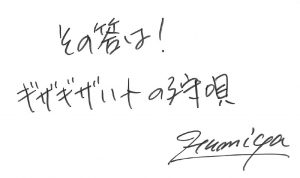 その答は!
ギザギザハートの子守唄